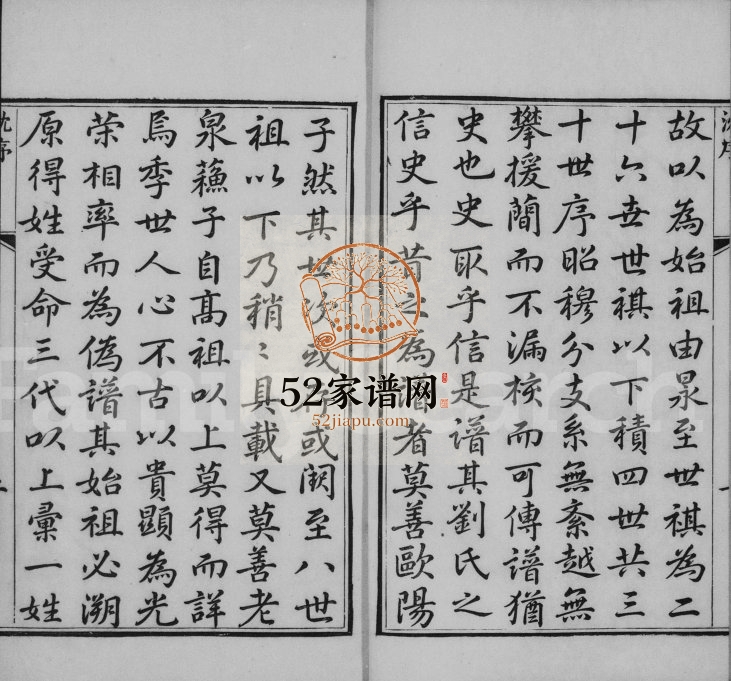 沈序
故以為始祖由杲至世祺為二
十六世世祺以下積四世共三
十世序昭穆分支系無紊越無
攀援簡而不漏核而可傳譜猶
史也史取乎信是譜其劉氏之
信史乎昔之為譜者莫善歐陽
子然其世次或 或闕至八世
祖以下乃稍〻具載又莫善老
泉蘓子自髙祖以上莫得而詳
焉季世人心不古以貴顯為光
荣相率而為偽譜其始祖必溯
原得姓受命三代以上彙一姓
沈序
一
52家谱网
52jiapu.com
FamilySearch